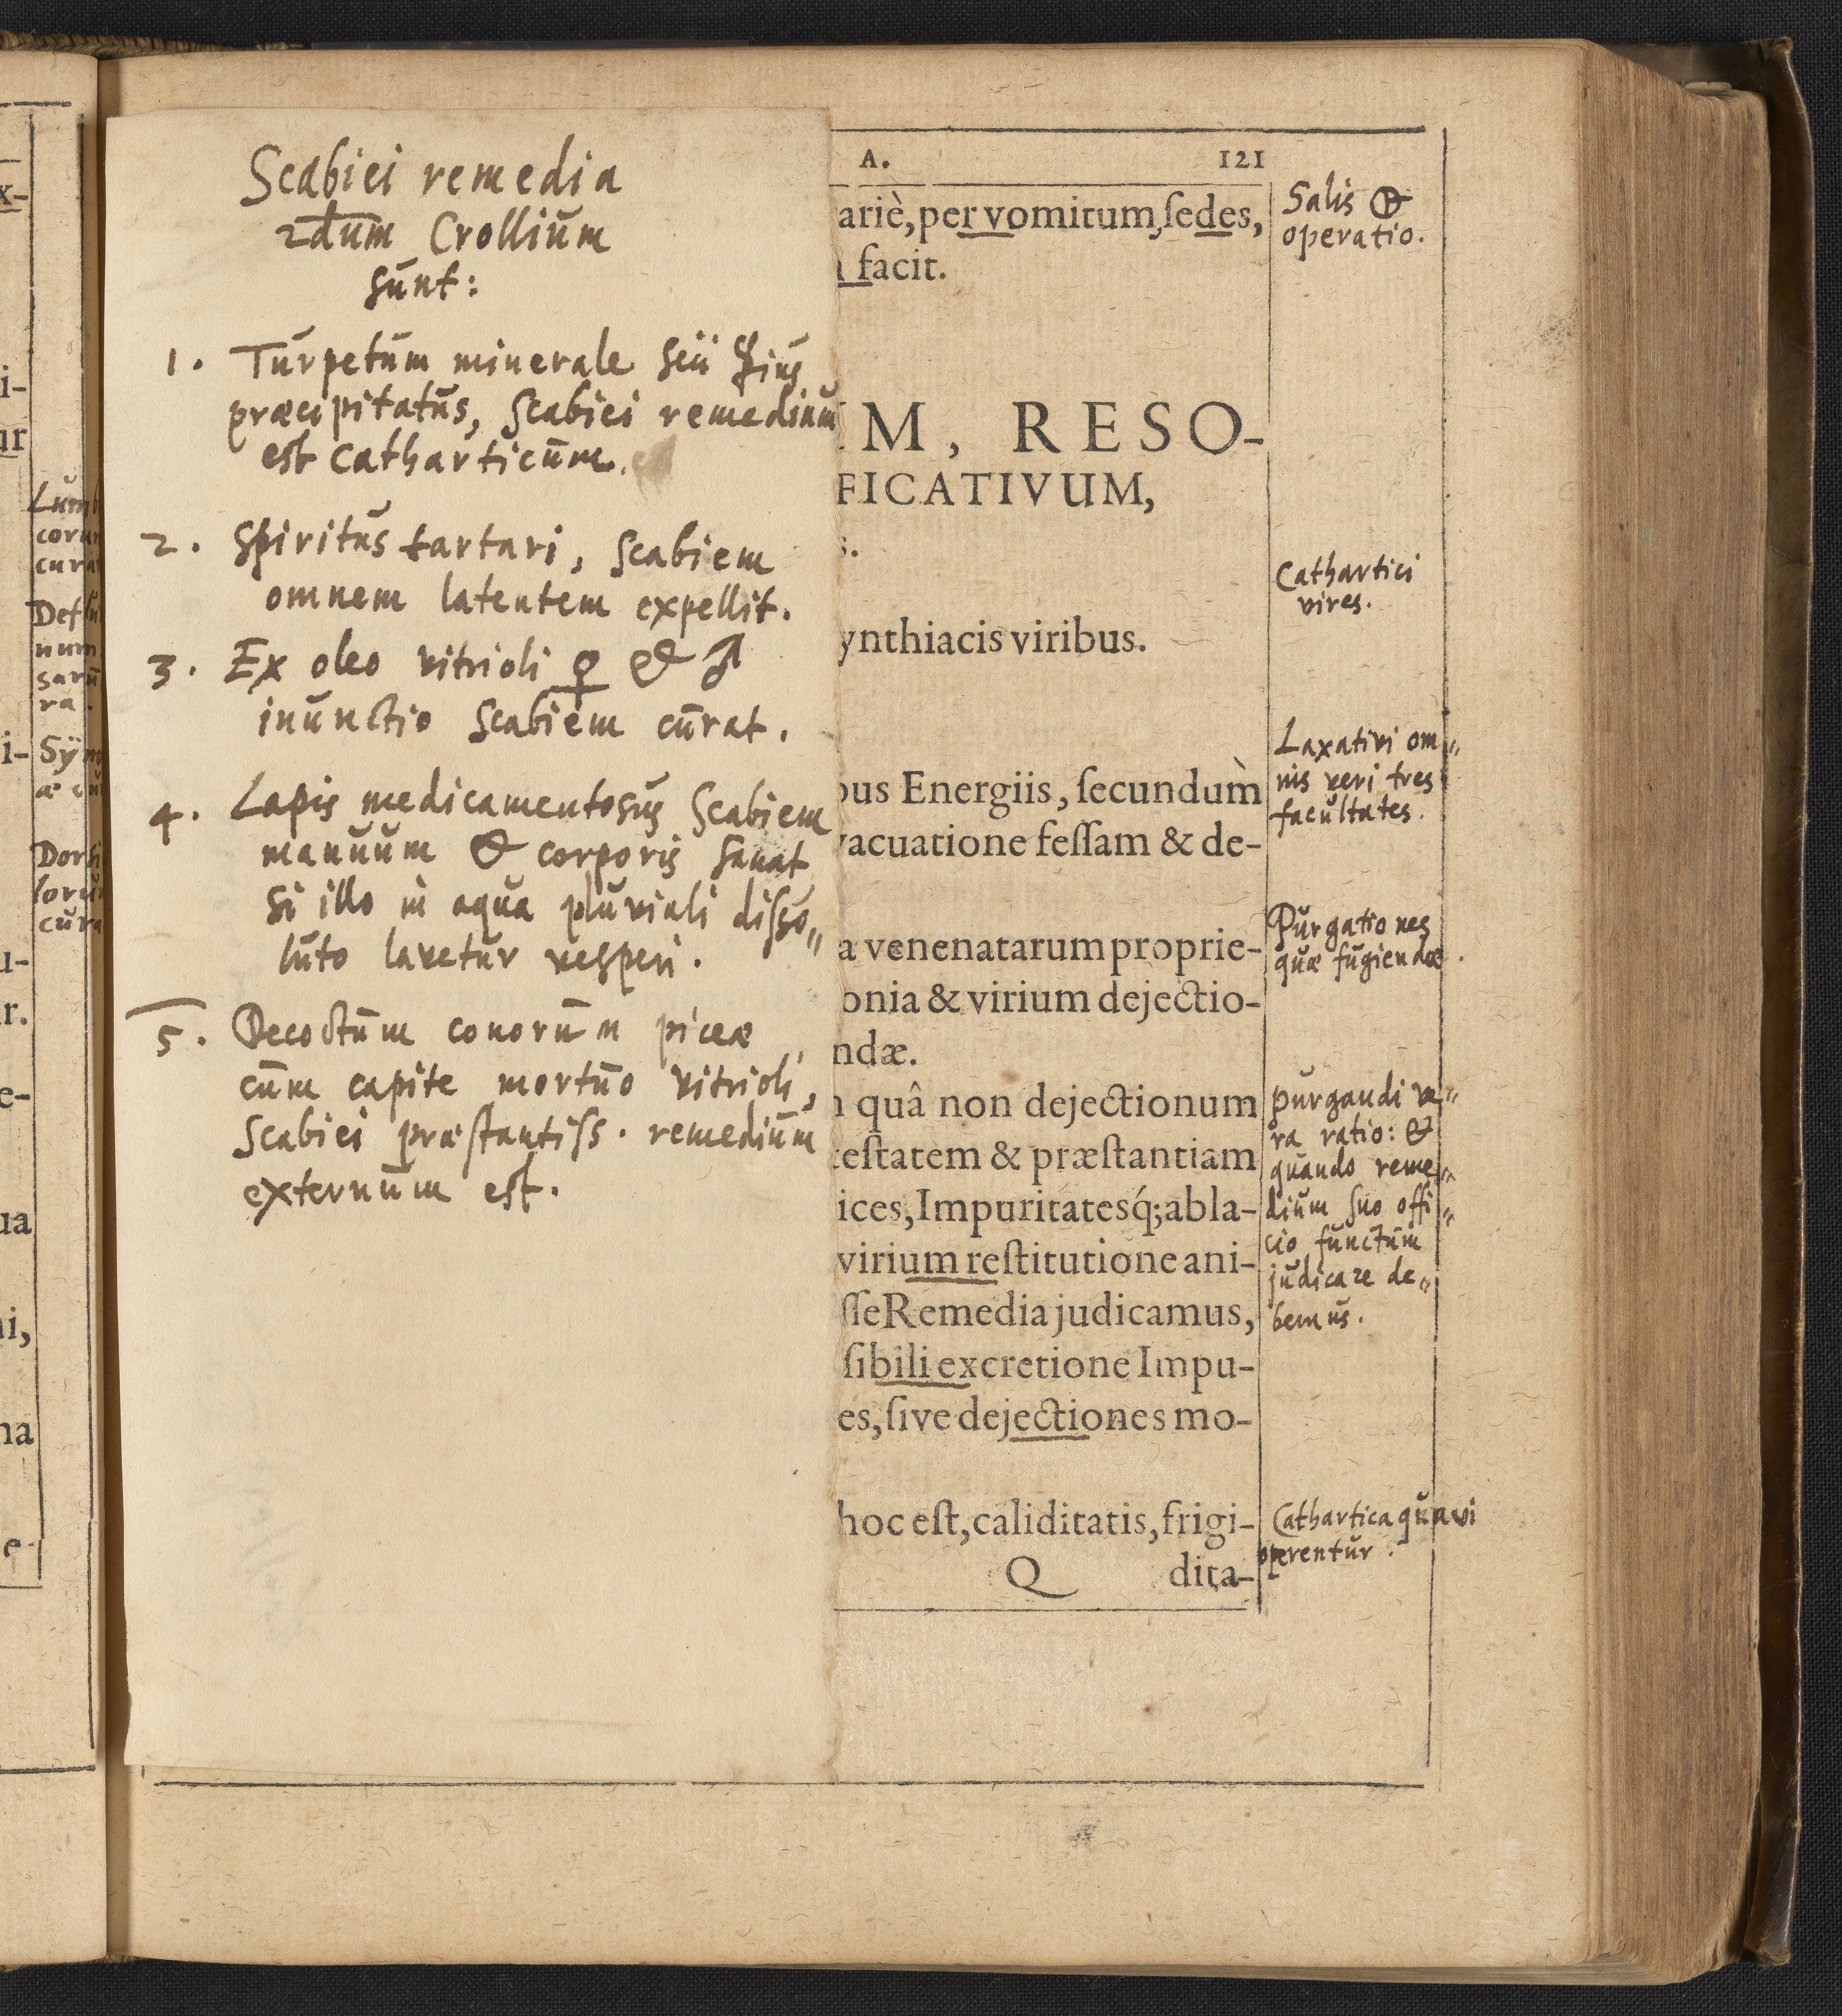 Scabiei remedia
2dum Crollium
sunt:
1. Turpetum minerale seu ☿ius
præcipitatus, Scabiei remedium
est catharticum.
2. Spiritus tartari, Scabiem
omnem latentem expellit.
3. Ex oleo vitrioli ♀ & ♂
inunctio Scabiem curat.
4. Lapis medicamentosus Scabiem
manuum & corporis sanat
si illo in aqua pluviali disso〃
luto lavetur vesperi.
5. Decoctum conorum piceæ
cum capite mortuo vitrioli,
Scabiei præstantiss. remedium
externum est.
A. 121
ariè, per vomitum, ſedes,
facit.
M, RESO-
FICATIVUM,
s.
ynthiacis viribus.
bus Energiis, ſecundum̀
vacuatione feſſam & de-
a venenatarum proprie-
onia & virium dejectio-
ndæ.
quâ non dejectionum
teſtatem & præſtantiam
ices, Impuritatesq́; abla-
virium reſtitutione ani-
ſſe Remedia judicamus,
ſibili excretione Impu-
es, ſive dejectiones mo-
hoc eſt, caliditatis, frigi-
Q dita-
Salis 🜕
operatio.
Cathartici
vires.
Laxativi om〃
nis veri tres
facultates.
Purgationes
quæ fugiendæ.
purgandi ve〃
ra ratio: &
quando reme〃
dium suo offi〃
cio functum
judicare de〃
bemus.
Cathartica qua vi
operentur.
x-
i-
ur
i-
u-
r.
e-
ua
ni,
na
e-